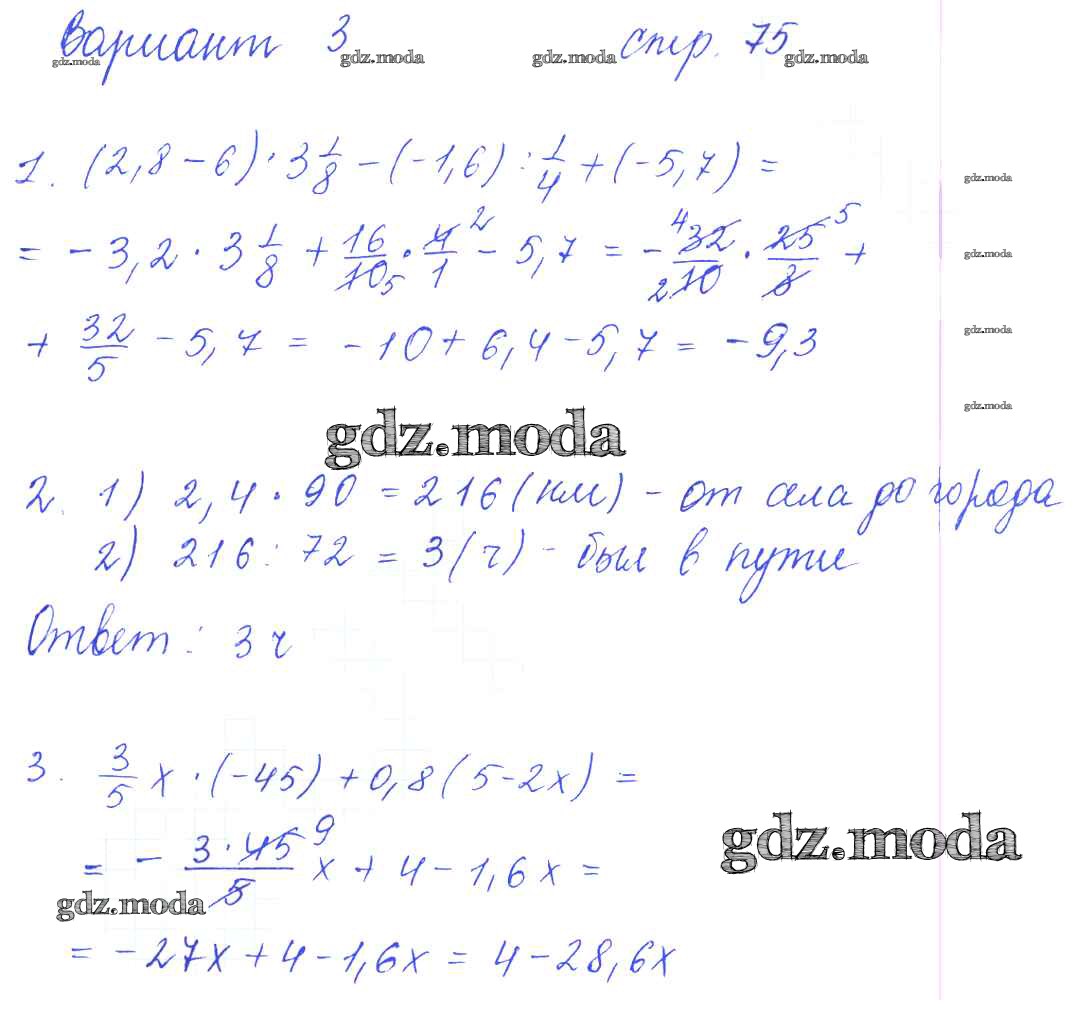 вариант 3 стр. 75
gdz.moda gdz.moda gdz.moda gdz.moda
1. (2,8 − 6) · 3 1/8 − (−1,6) : 1/4 + (−5,7) =
gdz.moda
= −3,2 · 3 1/8 + 16/10 5 · 4/1 2 − 5,7 = − 4 32/10 2 · 25/8 5 +
gdz.moda
+ 32/5 − 5,7 = −10 + 6,4 − 5,7 = −9,3
gdz.moda
gdz.moda
gdz.moda
2. 1) 2,4 · 90 = 216 (км) − от села до города
2) 216 : 72 = 3 (ч) − был в пути
Ответ: 3 ч
3. 3/5 x · (−45) + 0,8 (5 − 2x) =
= − 3 · 45 9/5 x + 4 − 1,6x =
gdz.moda
gdz.moda
= −27x + 4 − 1,6x = 4 − 28,6x